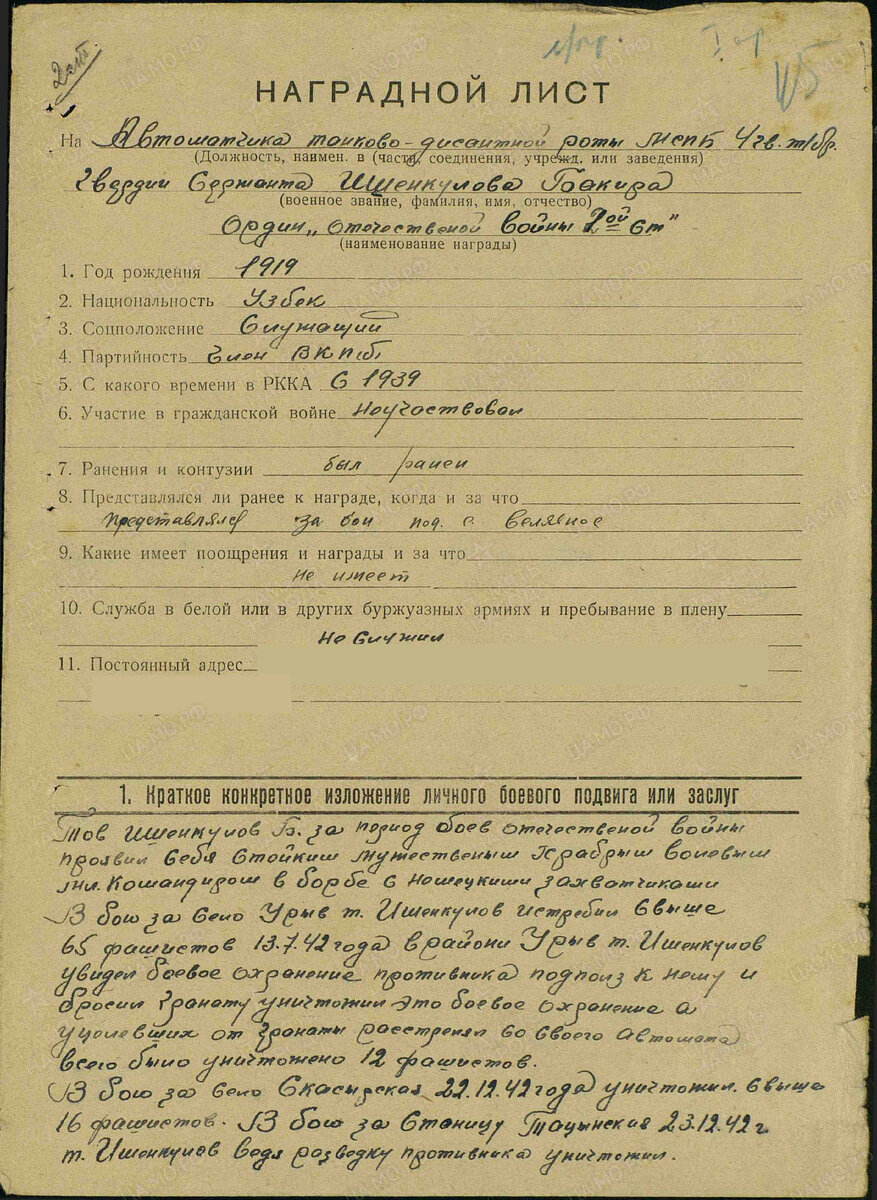 2 смт.
V5
НАГРАДНОЙ ЛИСТ
На Автоматчика танково-дисантной роты мспб 4 гв. т/бр.
(Должность, наимен. в (части, соединения, учрежд. или заведения)
Гвардии Сержанта Ишенкулова Бакира
(военное звание, фамилия, имя, отчество)
Ордин „Отечественой Войны 2ой Ст"
(наименование награды)
1. Год рождения 1919
2. Национальность Узбек
3. Соцположение Служащий
4. Партийность Член ВКПб
5. С какого времени в РККА С 1939
6. Участие в гражданской войне Неучаствовал
7. Ранения и контузии был ранен
8. Представлялся ли ранее к награде, когда и за что
Представлялся за бои под. с
9. Какие имеет поощрения и награды и за что
Не имеет
10. Служба в белой или в других буржуазных армиях и пребывание в плену
Не Служил
11. Постоянный адрес
1. Краткое конкретное изложение личного боевого подвига или заслуг
Тов Ишенкулов Б. за период боев отечественой войны
проявил Себя Стойким мужественым Храбрым волевым
мл. Командиром в борьбе с немецкими захватчиками
В бою за Село Урыв т. Ишенкулов истребил Свыше
65 фашистов 13.7.42 года в райони Урыв т. Ишенкулов
увидел боевое охранение противника подполз к нему и
бросил гранату уничтожил это боевое охранение а
уцелевших от гранаты расстрелял со Своего Автомата
всего было уничтожено 12 фашистов.
В бою за Село Скасырская 22.12.42 года уничтожил Свыше
16 фашистов. В бою за Станицу Тацынская 23.12.42 г
т. Ишенкулов ведя разведку противника уничтожил.